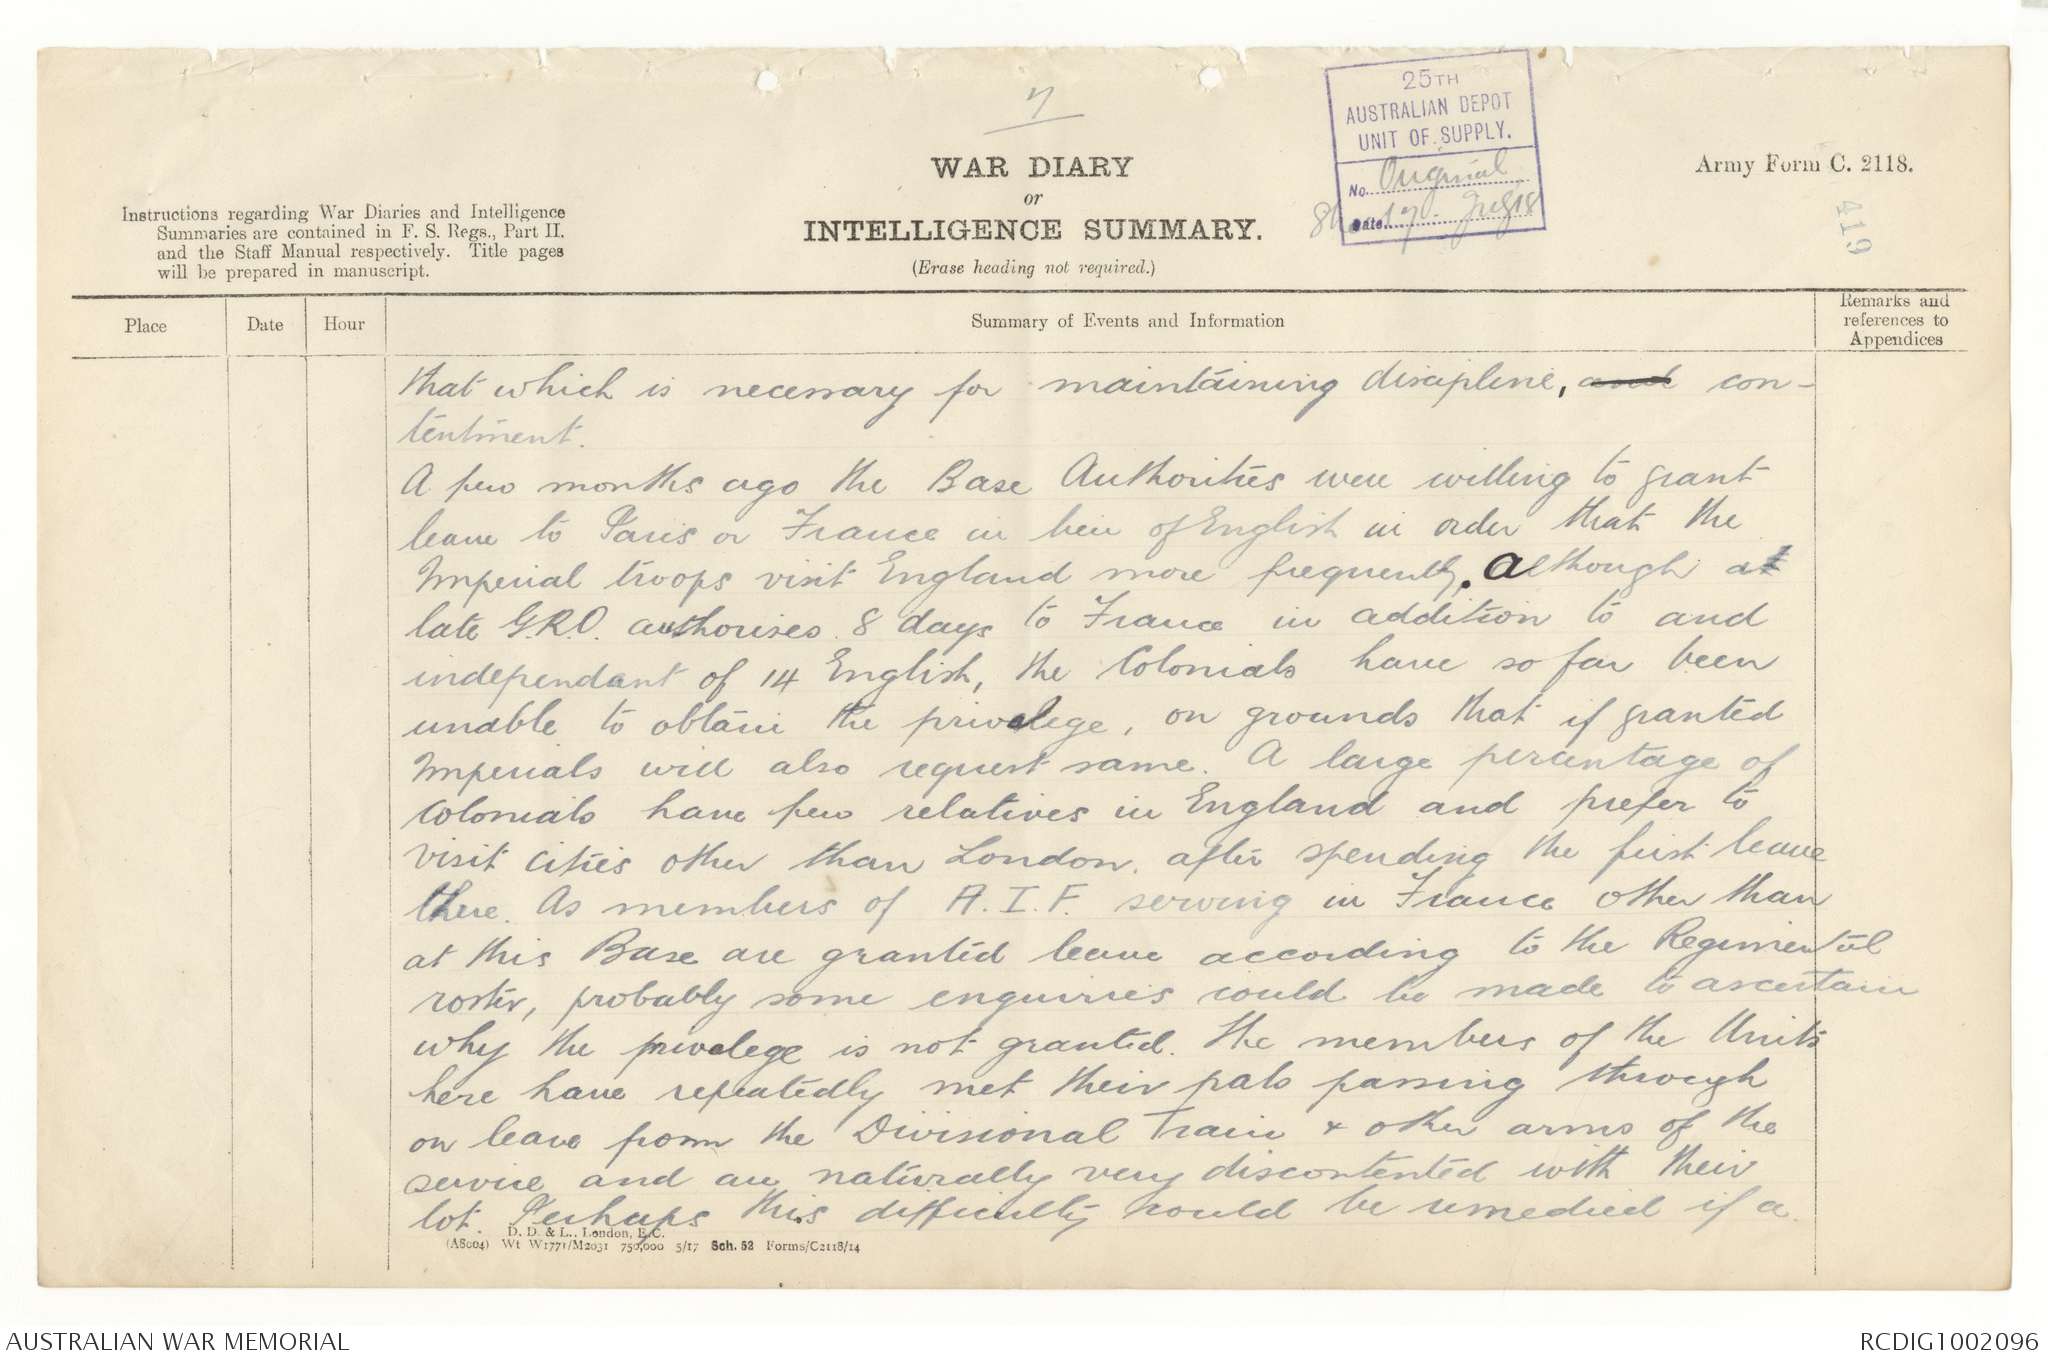 7
25TH
AUSTRALIAN DEPOT
UNIT OF SUPPLY.
No. Original
Date 17
WAR DIARY
or
INTELLIGENCE SUMMARY.
(Erase heading not required.)
Army Form C. 2118.
419
Instructions regarding War Diaries and Intelligence
Summaries are contained in F. S. Regs., Part II.
and the Staff Manual respectively. Title pages
will be prepared in manuscript.
Place
Date
Hour
Summary of Events and Information
Remarks and
references to
Appendices
that which is necessary for maintaining discipline, and con-
tentment.
A few months ago the Base Authorities were willing to grant
leave to Paris or France in lieu of English in order that the
Imperial troops visit England more frequently. Although at
late G.R.O. authorises 8 days to France in addition to and
independant of 14 English, the Colonials have so far been
unable to obtain the privelege, on grounds that if granted
Imperials will also request same. A large percentage of
Colonials have few relatives in England and prefer to
visit cities other than London. after spending the first leave
there. As members of A.I.F. serving in France other than
at this Base are granted leave according to the Regimental
roster, probably some enquiries could be made to ascertain
why the privelege is not granted. The members of the Units
here have repeatedly met their pals passing through
on leave from the Divisional Train & other arms of the
service and are naturally very discontented with their
lot. Perhaps this difficulty could be remedied if a
D. D. & L., London, E.C.
(A8004) Wt W1771/M2031 750,000 5/17 Sch. 52 Forms/C2118/14
AUSTRALIAN WAR MEMORIAL
RCDIG1002096